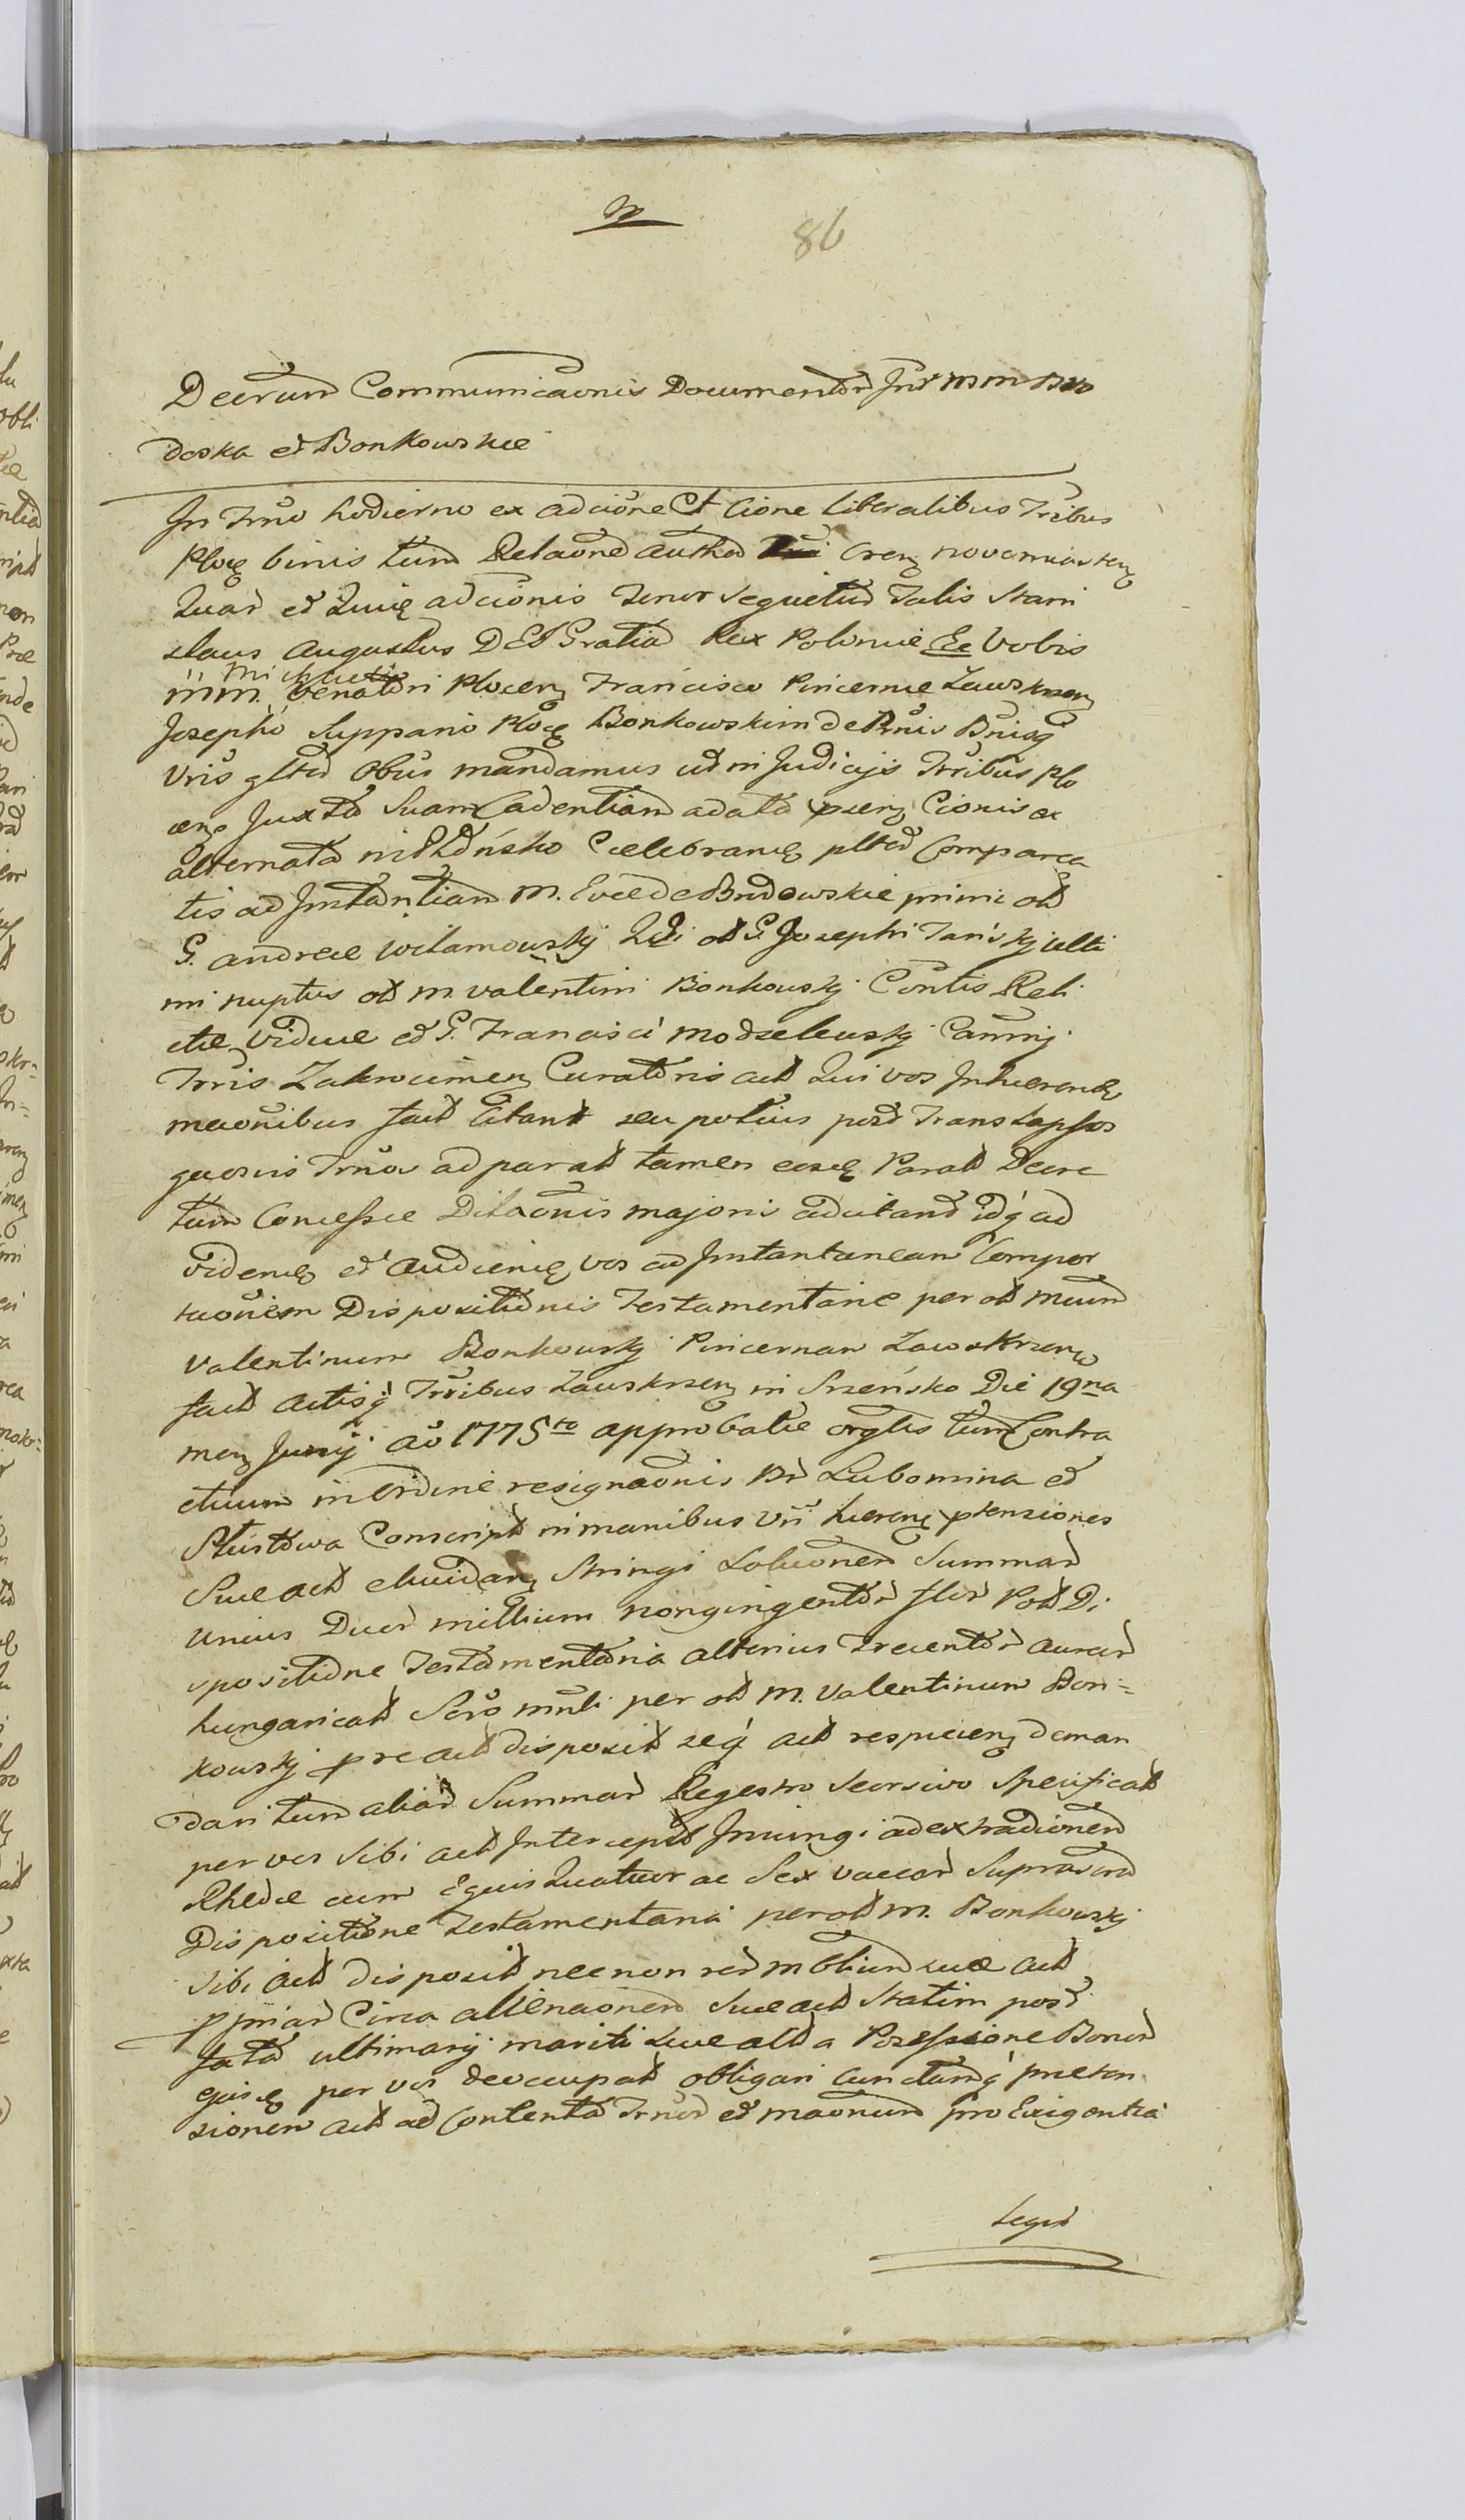 86
Decrum Communicaonis Documentor Intr mm Bu
doska et Bonkowskie
In Trno hodierno ex adcione Ct Cione liberalibus Tribus
Ploc binis tum Relaone autha Cren novomiasken
Quar et Quie adcionis Tenor seguitur Talis Stani
slaus Augustus DEI Gratia Rex Polonie Etc Vobis
mm. Michaeli Plocen Francisco Pincernae Zawskrzen
Josepho Suppario Ploc Bonkowskim de Psnis Bnisq
Vris gltr Obus mandamus ut in Judicijs Trribus Plo
cens Juxta Suam Cadentiam a data pnen Cionis ex
alternata in Szrńsko Celebrand pltr Comparea
tis ad Instantiam M. Evae de Budowskie primi ol
G. Andreae Wilamowskij 2di ol G. Josephi Tanskij ulti
mi nuptus ol M. Valentini Bonkouskj Contis Reli
ctae Viduae et G. Francisci Modzeleuskj Camrij
Trris Zakrocimen Curatoris act Qui vos Inhaerend
meaonibus fact Citant seu potius post Translapsos
quosvis Trnos ad parat tamen easd Parat Decre
tum Concessae Dilaonis majoris adcitant idq ad
vidend et audiend vos ad Instantaneam Compor
taonem Dispositionis Testamentariae per ol Mcum
Valentinum Bonkouskj Pincernam Zawskrzen
fact actisq Trribus Zauskrzen in Srzeńsko Die 19na
men Junij ao 1775to approbatae orglis tum Contra
ctuum in ordine resignaonis Br Lubomina et
Conscript in manibus Vri haeren ptensiones
Suae act elucidan Stringi Solucionem Summar
unius Duor millium nongingentor flor Pol Di
spositione Testamentaria alterius Trecentor aureor
hungarical Soro mnli per ol M. Valentinum Bon=
kouskj pre act disposit seq act respicien deman
dari tum aliar Summar Regestro seorsivo Specificat
per vos Sibi act Intercept Injungi ad extradionem
Rhedae cum Equis Quatuor ac Sex vaccar Supra
Dispositione Testamentaria per ol M. Bonkouskj
Sibi act disposit necnon rer mobilium suae act
ppriar Circa alienaonem Suae act Statim post
fata ultimarij mariti suae alla Possessione Bonor
ejusd per vos deoccupat obligari cunctamq praeten
sionem act ad Contenta Trnor et maonum pro Exigentia
Legis